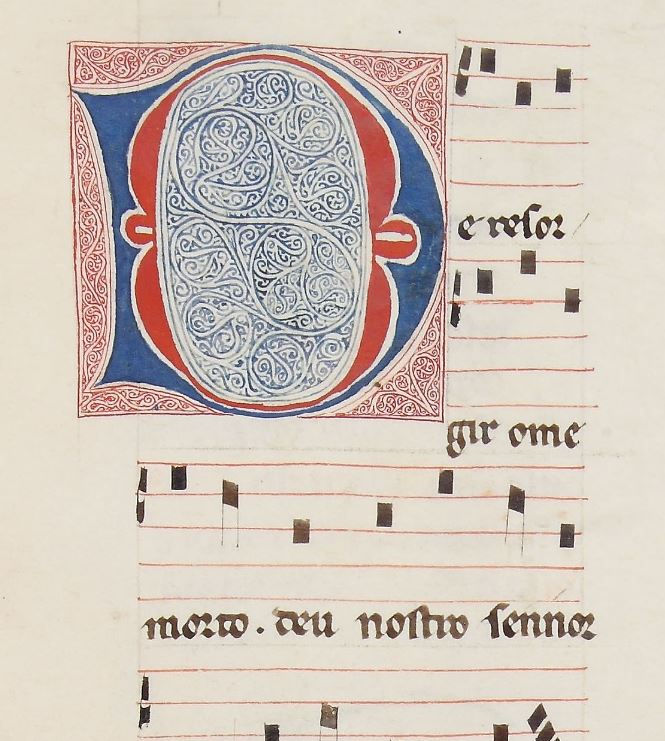 De resor
gir ome
morto. deu nostro sennor